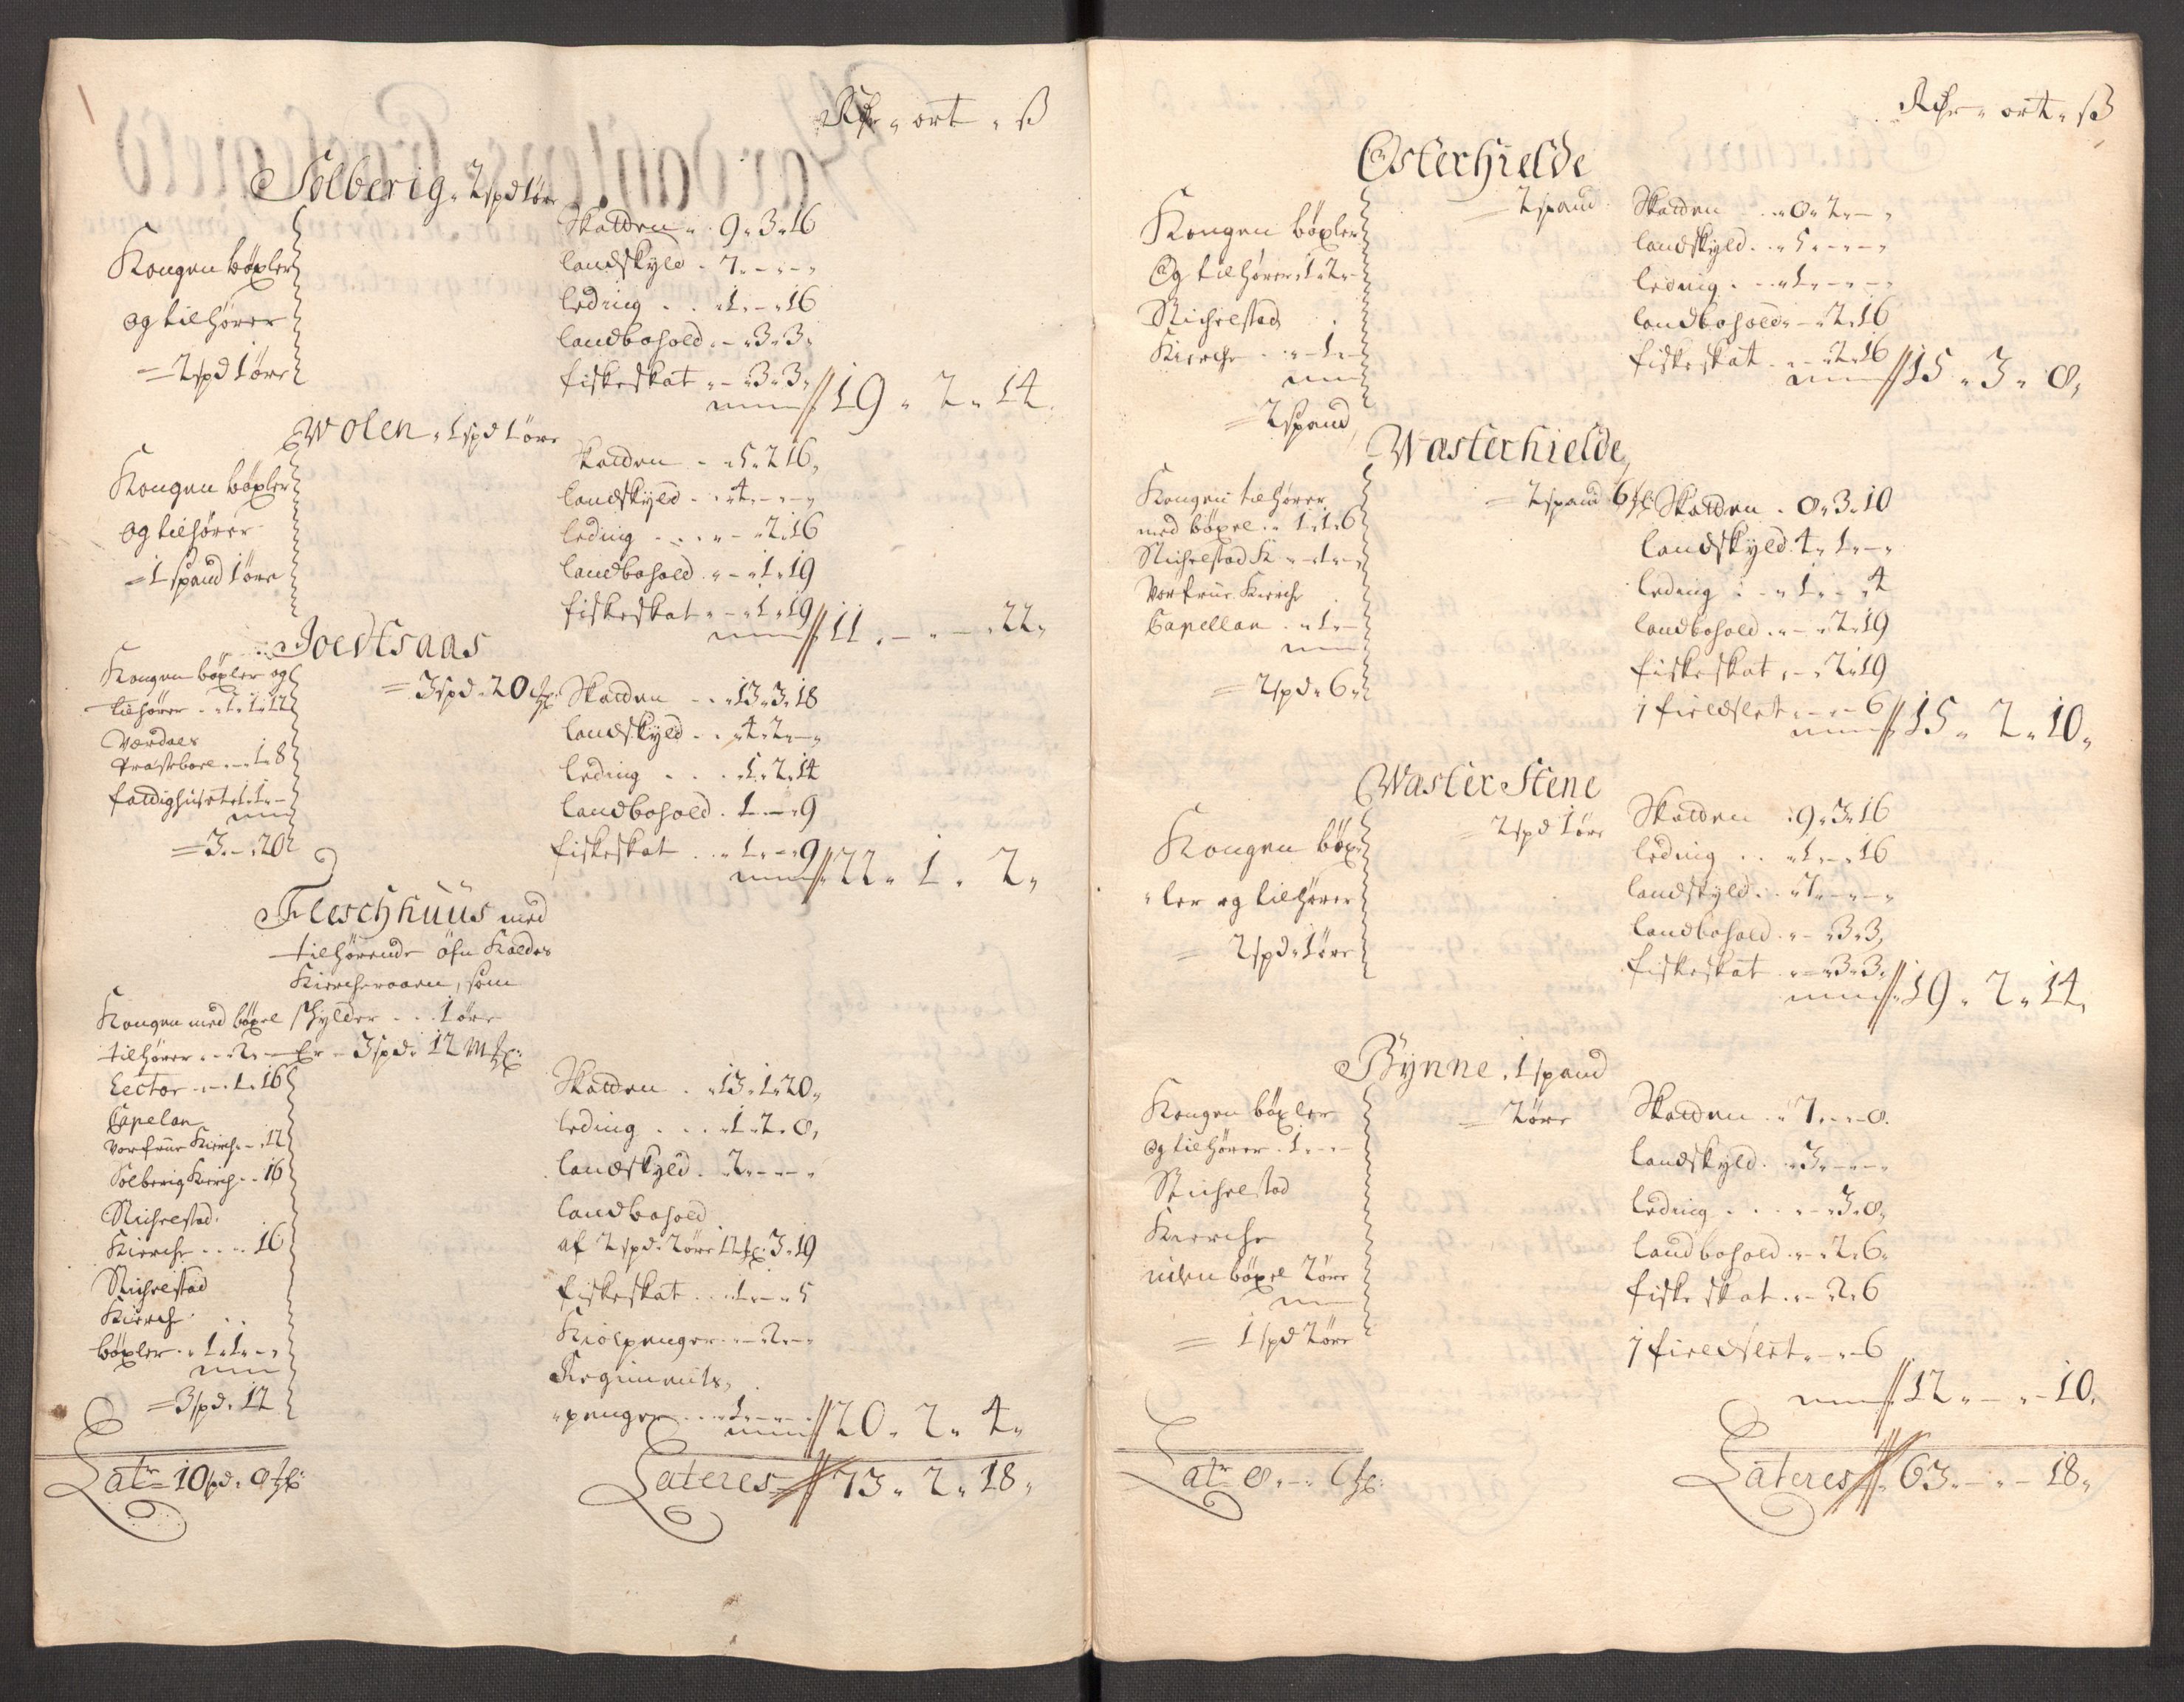 Rdr " ort " ß
Solberig " 2 spd 1 øre
Kongen bøxler
og tilhører
= 2 spd 1 øre
Skatten " 9 " 3 " 16
landskyld " 7 " - " - "
leding " 1 " - " 16
landbohold " - " 3 " 3 "
fiskeskat " - " 3 " 3 "
19 " 2 " 14
Wolen " 1 spd 1 øre
Kongen bøxler
og tilhører
= 1 spand 1 øre
Skatten " 5 " 2 16 "
landskyld " 4 " - " - "
leding " - " 2 " 16
landbohold " - " 1 " 19
fiskeskat " - " 1 " 19
11 " - " 22 "
Joedtsaas
= 3 spd " 20
Kongen bøxler og
tilhører " 1 " 1 " 12
Værdals
Præsteboel " - " 1 " 8
fattighuset " 1 " 1 " -
= 3 " - " 20
Skatten " 13 " 3 " 18
landskyld " 4 " 2 " - "
leding " 1 " 2 " 14
landbohold " 1 " - " 9
fiskeskat " 1 " - " 9
22 " 1 " 2 "
Fleschhuus med
tilhørende
Kiercheroaen, som
Kongen med bøxel schylder " 1 øre
tilhører " - 2 " - Er - 3 spd " 12
Lector " - " 1 " 16
Capelan
Vorfrue Kirch " - " 12
Solberig Kirch " - 16
Stichelstad
Kierche " 16
Stichelstad
Kierch
bøxler " 1 " 1 " - "
= 3 spd " 12
Skatten " 13 " 1 " 20 "
leding " 1 " 2 " 8 "
landskyld " 2 " - " - "
landbohold
af 2 spd " 2 øre 12 " 3 " 19
fiskeskat " 1 " - " 5
Kiølpenger " - " 2 " - "
Regiments
" penger " 1 " - " -
20 " 2 " 4 "
Latr = 10 spd " 8
Lateres 73 " 2 " 18 "
Rdr " ort " ß
Østerhielde
= 2 spand
Kongen bøxler
Og tilhører " 1 " 2 " -
Stichelstad
Kierche " - " 1 " -
= 2 spand
Skatten " 8 " 2 " - "
landskyld " 5 " - " - "
leding " 1 " - " - "
landbohold " - " 2 " 16
fiskeskat " - " 2 " 16
15 " 3 " 8 "
Wasterhielde
= 2 spand 6
Kongen tilhører
med bøxel " 1 " 1 " 6
Stichelstad K " - " 1 " - "
Vorfrue Kierche
Capellan " 1 " -
= 2 spd " 6 "
Skatten " 8 " 3 " 10
landskyld 4 " 1 " - "
leding " 1 " - " 4
landbohold " - " 2 " 19
fiskeskat " - " 2 " 19
1 fieldslet " - " - 6
15 " 2 " 10 "
Waster Stene
= 2 spd 1 øre
Kongen bøx
" ler og tilhører
= 2 spd " 1 øre
Skatten " 9 " 3 " 16
leding " 1 " - " 16
landskyld " 7 " - " - "
landbohold " - " 3 " 3 "
fiskeskat " - " 3 " 3 "
19 " 2 " 14 "
Bynne " 1 spand
= 2 øre
Kongen bøxler
og tilhører " 1 " - "
Stichelstad
Kierche
uden bøxel 2 øre
= 1 spd 2 øre
Skatten " 7 " - " 8 "
landskyld " 3 " - " - "
leding " - " 3 " 8 "
landbohold " - " 2 " 6 "
fiske skat " - " 2 " 6
1 fieldslet " - " - 6
12 " - " - 10 "
Latr 8 " - " 6
Lateres 63 " - " - 18 "